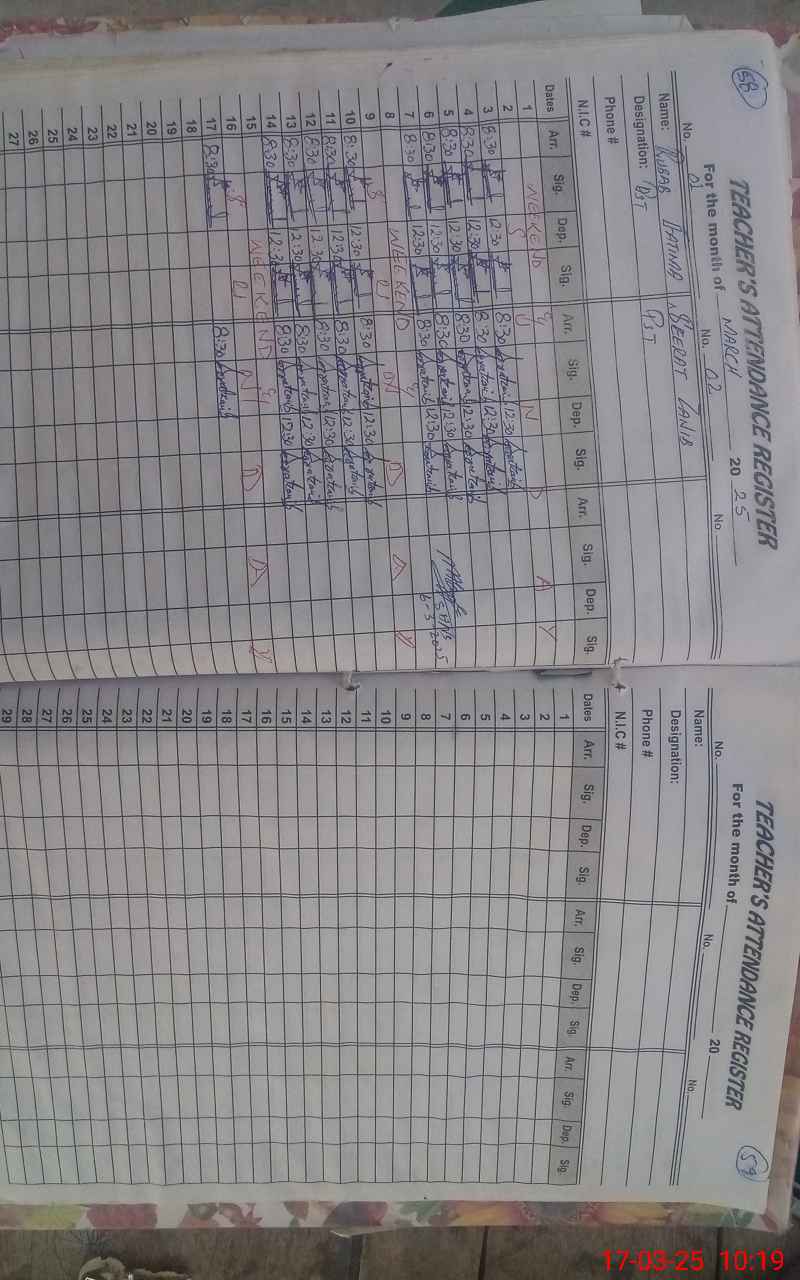 58
TEACHER'S ATTENDANCE REGISTER
For the month of MARCH 20 25
No. 01 No. 02 No.
Name: RUBAB FATIMA SEERAT ZANIB
Designation: PST PST
Phone #
N.I.C #
Dates Arr. Sig. Dep. Sig. Arr. Sig. Dep. Sig. Arr. Sig. Dep. Sig.
1 WEEKEND &
2 S U N D A Y
3 8:30 12:30 8:30 12:30
4 8:30 12:30 8:30 12:30
5 8:30 12:30 8:30 12:30
6 8:30 12:30 8:30 12:30
7 8:30 12:30 8:30 12:30
6-3-2025
8 WEEKEND &
9 S U N D A Y
10 8:30 12:30 8:30 12:30
11 8:30 12:30 8:30 12:30
12 8:30 12:30 8:30 12:30
13 8:30 12:30 8:30 12:30
14 8:30 12:30 8:30 12:30
15 WEEKEND &
16 S U N D A Y
17 8:30 8:30
18
19
20
21
22
23
24
25
26
27
59
TEACHER'S ATTENDANCE REGISTER
For the month of 20
No. No. No.
Name:
Designation:
Phone #
N.I.C #
Dates Arr. Sig. Dep. Sig. Arr. Sig. Dep. Sig. Arr. Sig. Dep. Sig.
1
2
3
4
5
6
7
8
9
10
11
12
13
14
15
16
17
18
19
20
21
22
23
24
25
26
27
28
29
17-03-25 10:19